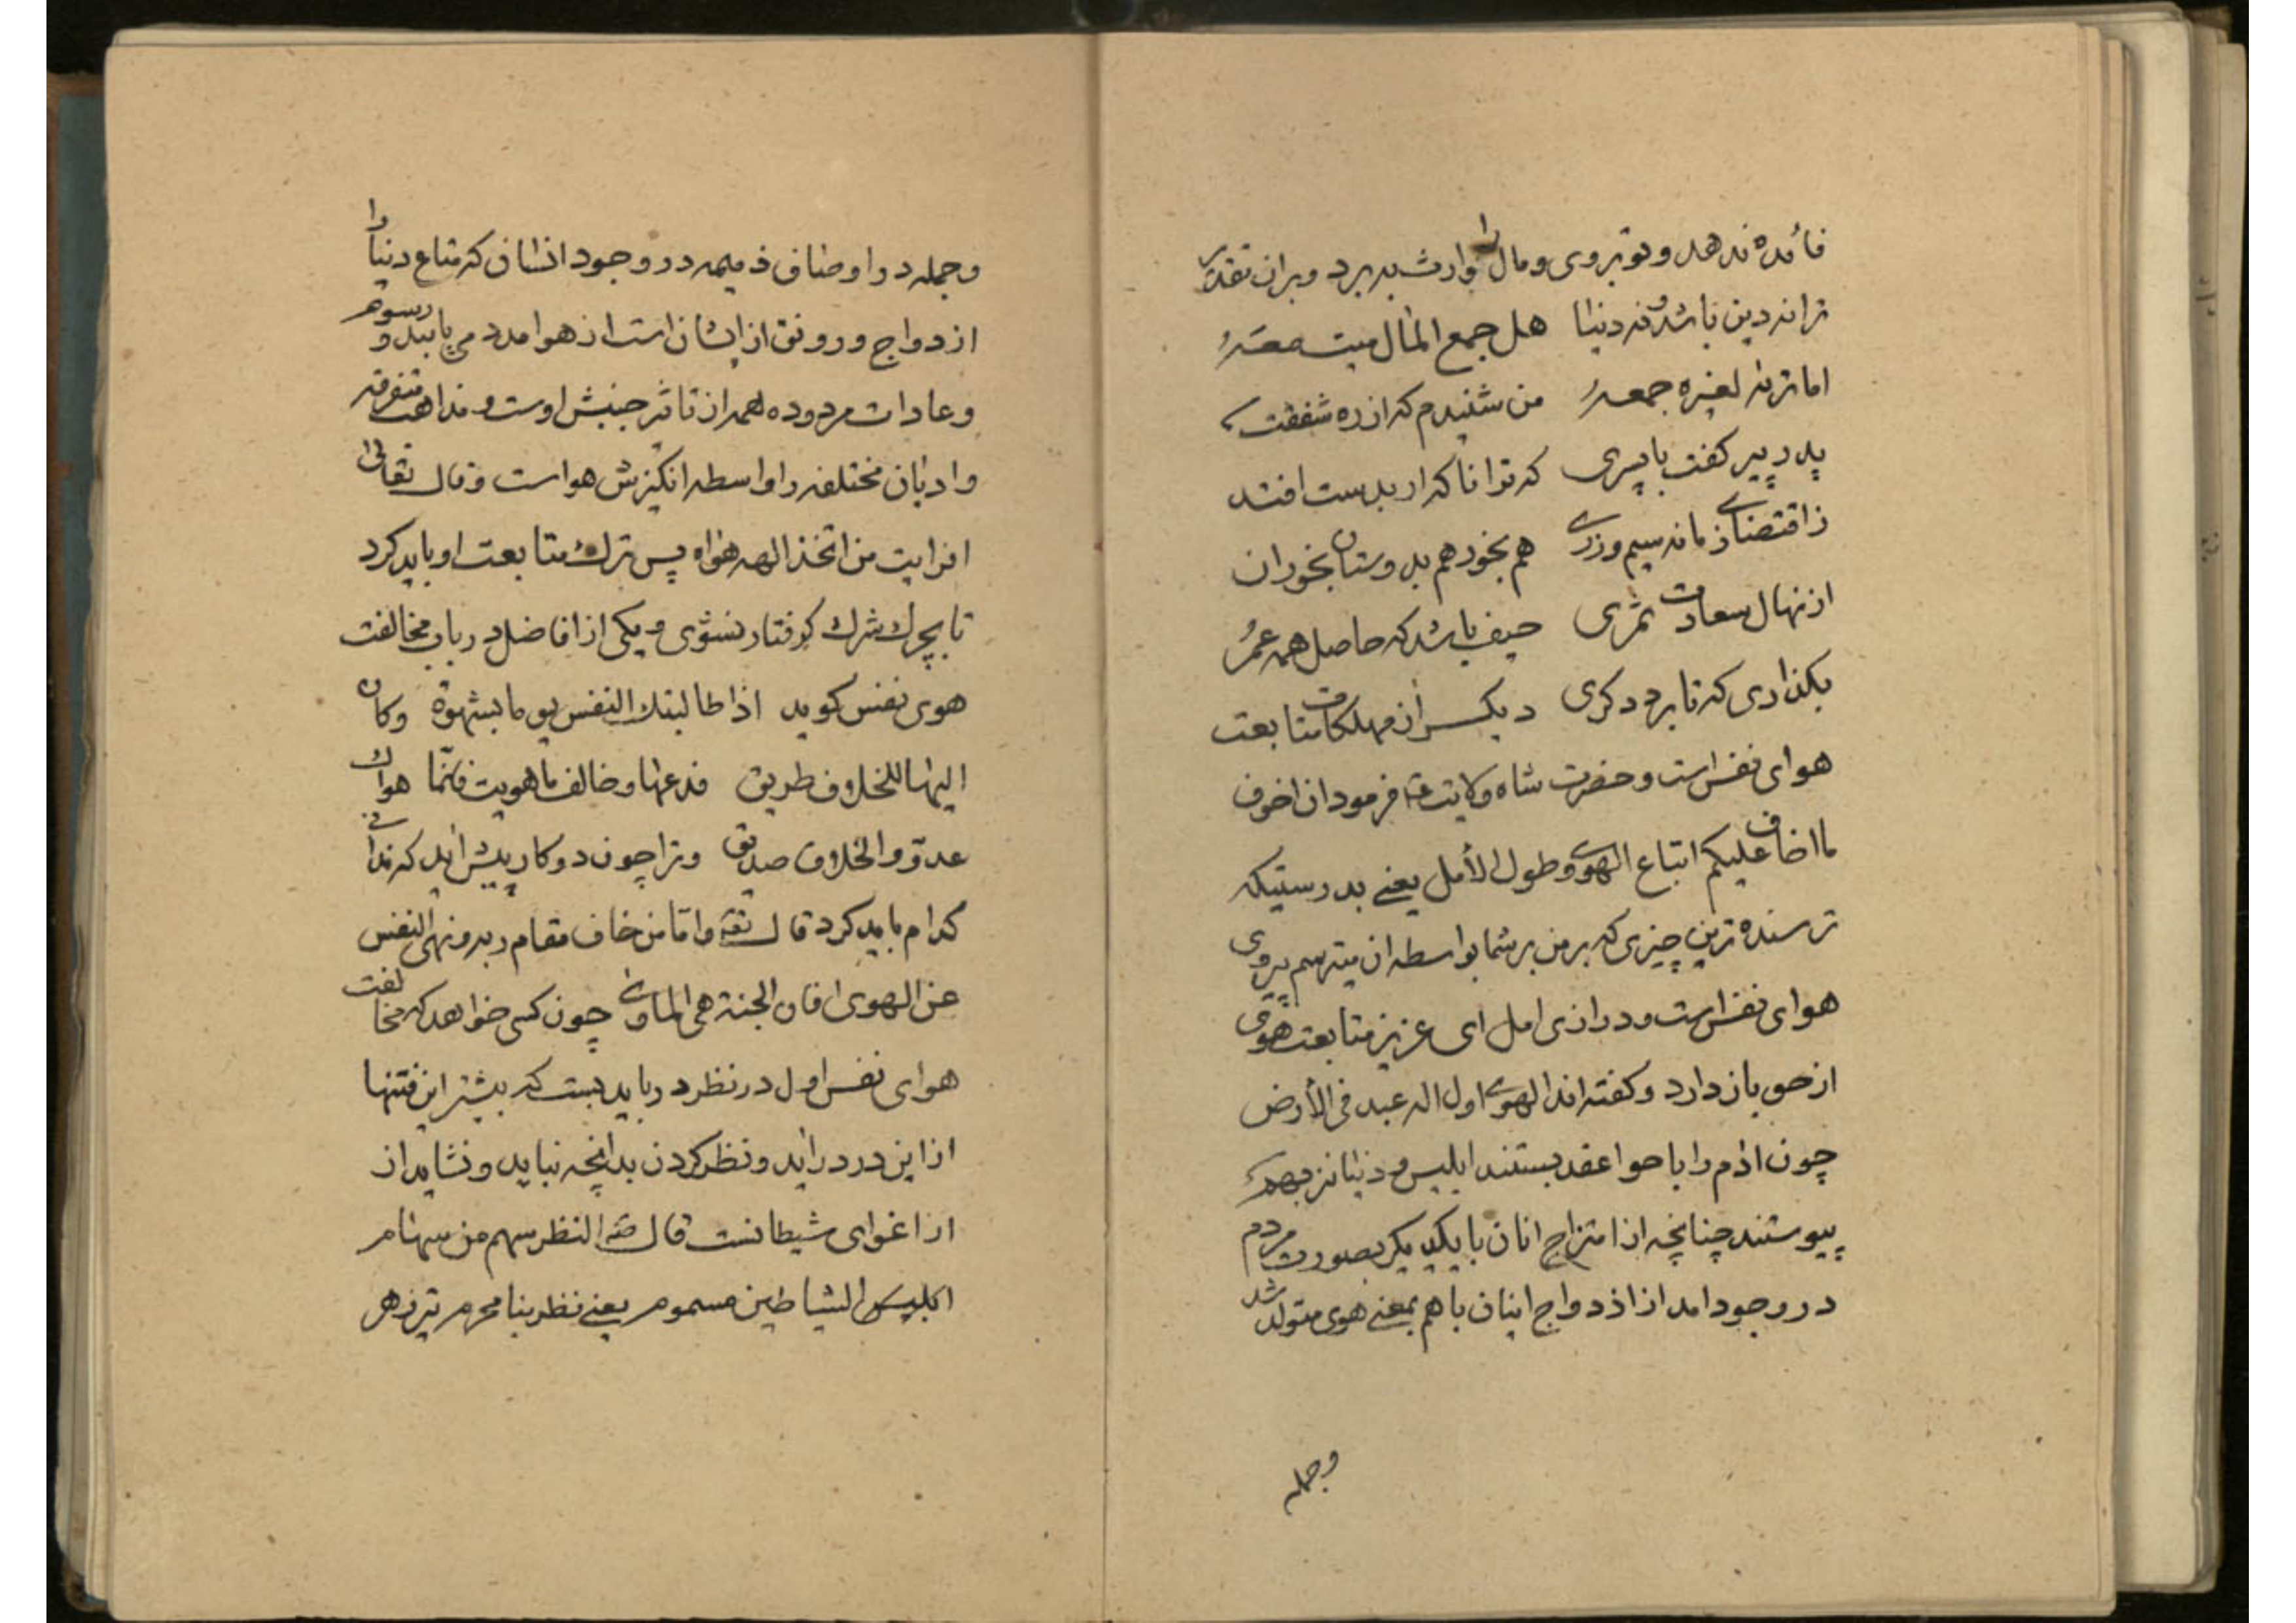 فائده ندهد و تو بروی و مال را وارث ببرد و بران تقدیر
ترا نه دین باشد و نه دنیا هل جمع المال میت معه
اما تراه لغیره جمعه من شنیدم که از ره شفقت
پدر پیر کفت با پسری که ترا نا که ار بدست افتد
ز اقتضای زمانه سیم و زری هم بخور هم بدوستان بخوران
از نهال سعادت ثمری حیف باشد که حاصل همه عمر
بکذاری که تا برد دکری دیکر از مهلکات متابعت
هوای نفس است و حضرت شاه ولایت فرمود ان اخوف
ما اخاف علیکم اتباع الهوی و طول الأمل یعنی بدرستیکه
ترسنده ترین چیزی که بر من بر شما بواسطه ان میترسم پیروی
هوای نفس است و درازی امل ای عزیز متابعت هوی
از حق باز دارد و کفته اند الهوی اول اله عبد فی الأرض
چون ادم را با حوا عقد بستند ابلیس و دنیا نیز بهم
پیوستند چنانچه از امتزاج انان با یکدیکر بصورت مردم
در وجود امد از ازدواج اینان باهم بمعنی هوی متولد شد
وجمله
وجمله در اوصاف ذمیمه در وجود انسان که متاع دنیا را
ازدواج و رونق از ایشان است از هوا مدد می یابند و رسوم
و عادات مردوده همه از تاثیر جنبش اوست و مذاهب متفرقه
و ادیان مختلفه را واسطه انکیزش هواست و قال تعالی
افرایت من اتخذ الهه هواه پس ترك متابعت او باید کرد
تا بچرك شرك کرفتار نشوی و یکی از افاضل در باب مخالفت
هوی نفس کوید اذا طالبتك النفس یوما بشهوة وکان
الیها للخلاف طریق فدعها وخالف ما هویت فانّما هواك
عدوّ والخلاف صدیق و ترا چون دو کار پیش اید که ندانی
کدام باید کرد قال تعه و امّا من خاف مقام ربه ونهی النفس
عن الهوی فان الجنة هی الماوی چون کسی خواهد که مخالفت
هوای نفس اول در نظر در باید بست که بیشتر این فتنها
از این در دراید و نظر کردن بدانچه نباید و نشاید از
از اغوای شیطانست قال النظر سهم من سهام
ابلیس الشیاطین مسموم یعنی نظر بنا محرم تیر زهر